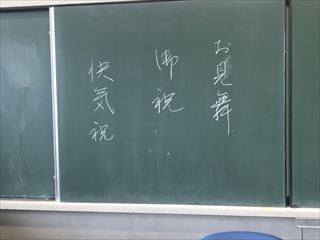 お見舞
御祝...
快気祝